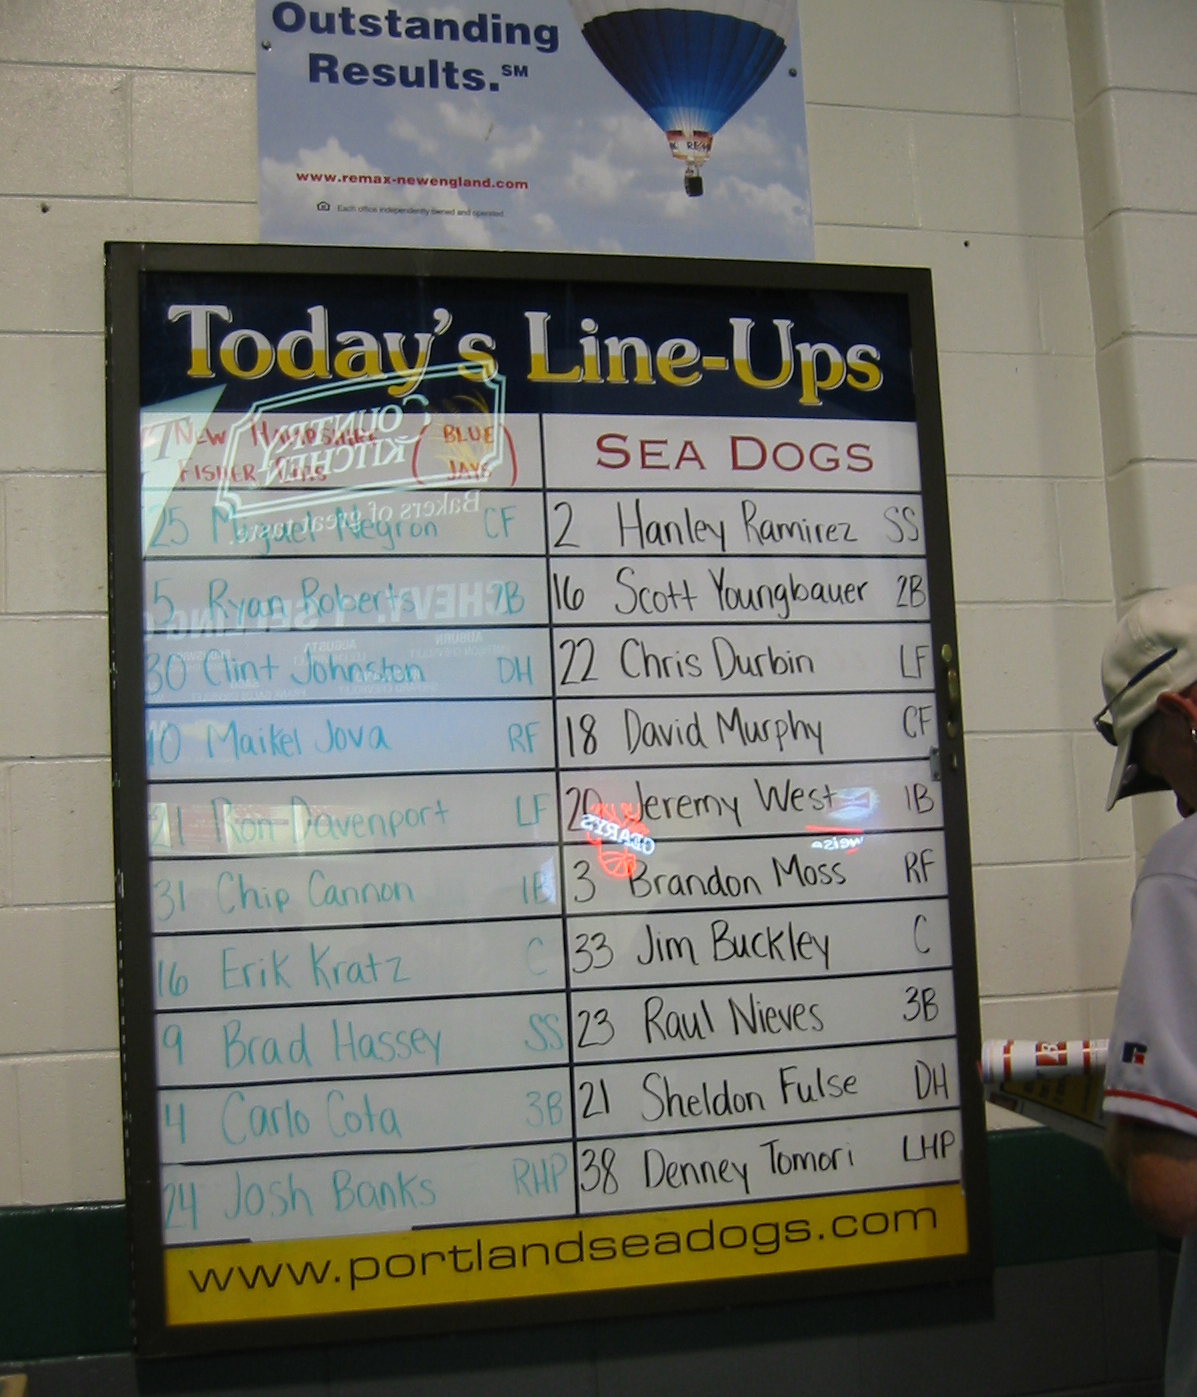 Outstanding
Results.℠
RE/MAX
www.remax-newengland.com
Each office independently owned and operated
Today's Line-Ups
New Hampshire (BLUE
Fisher Cats JAYS)
SEA DOGS
25 Miguel Negron CF
2 Hanley Ramirez SS
5 Ryan Roberts 2B
16 Scott Youngbauer 2B
30 Clint Johnston DH
22 Chris Durbin LF
10 Maikel Jova RF
18 David Murphy CF
21 Ron Davenport LF
20 Jeremy West 1B
31 Chip Cannon 1B
3 Brandon Moss RF
16 Erik Kratz C
33 Jim Buckley C
9 Brad Hassey SS
23 Raul Nieves 3B
4 Carlo Cota 3B
21 Sheldon Fulse DH
24 Josh Banks RHP
38 Denney Tomori LHP
www.portlandseadogs.com
COUNTRY
KITCHEN
Bakers of great taste.
GEARY'S
weise